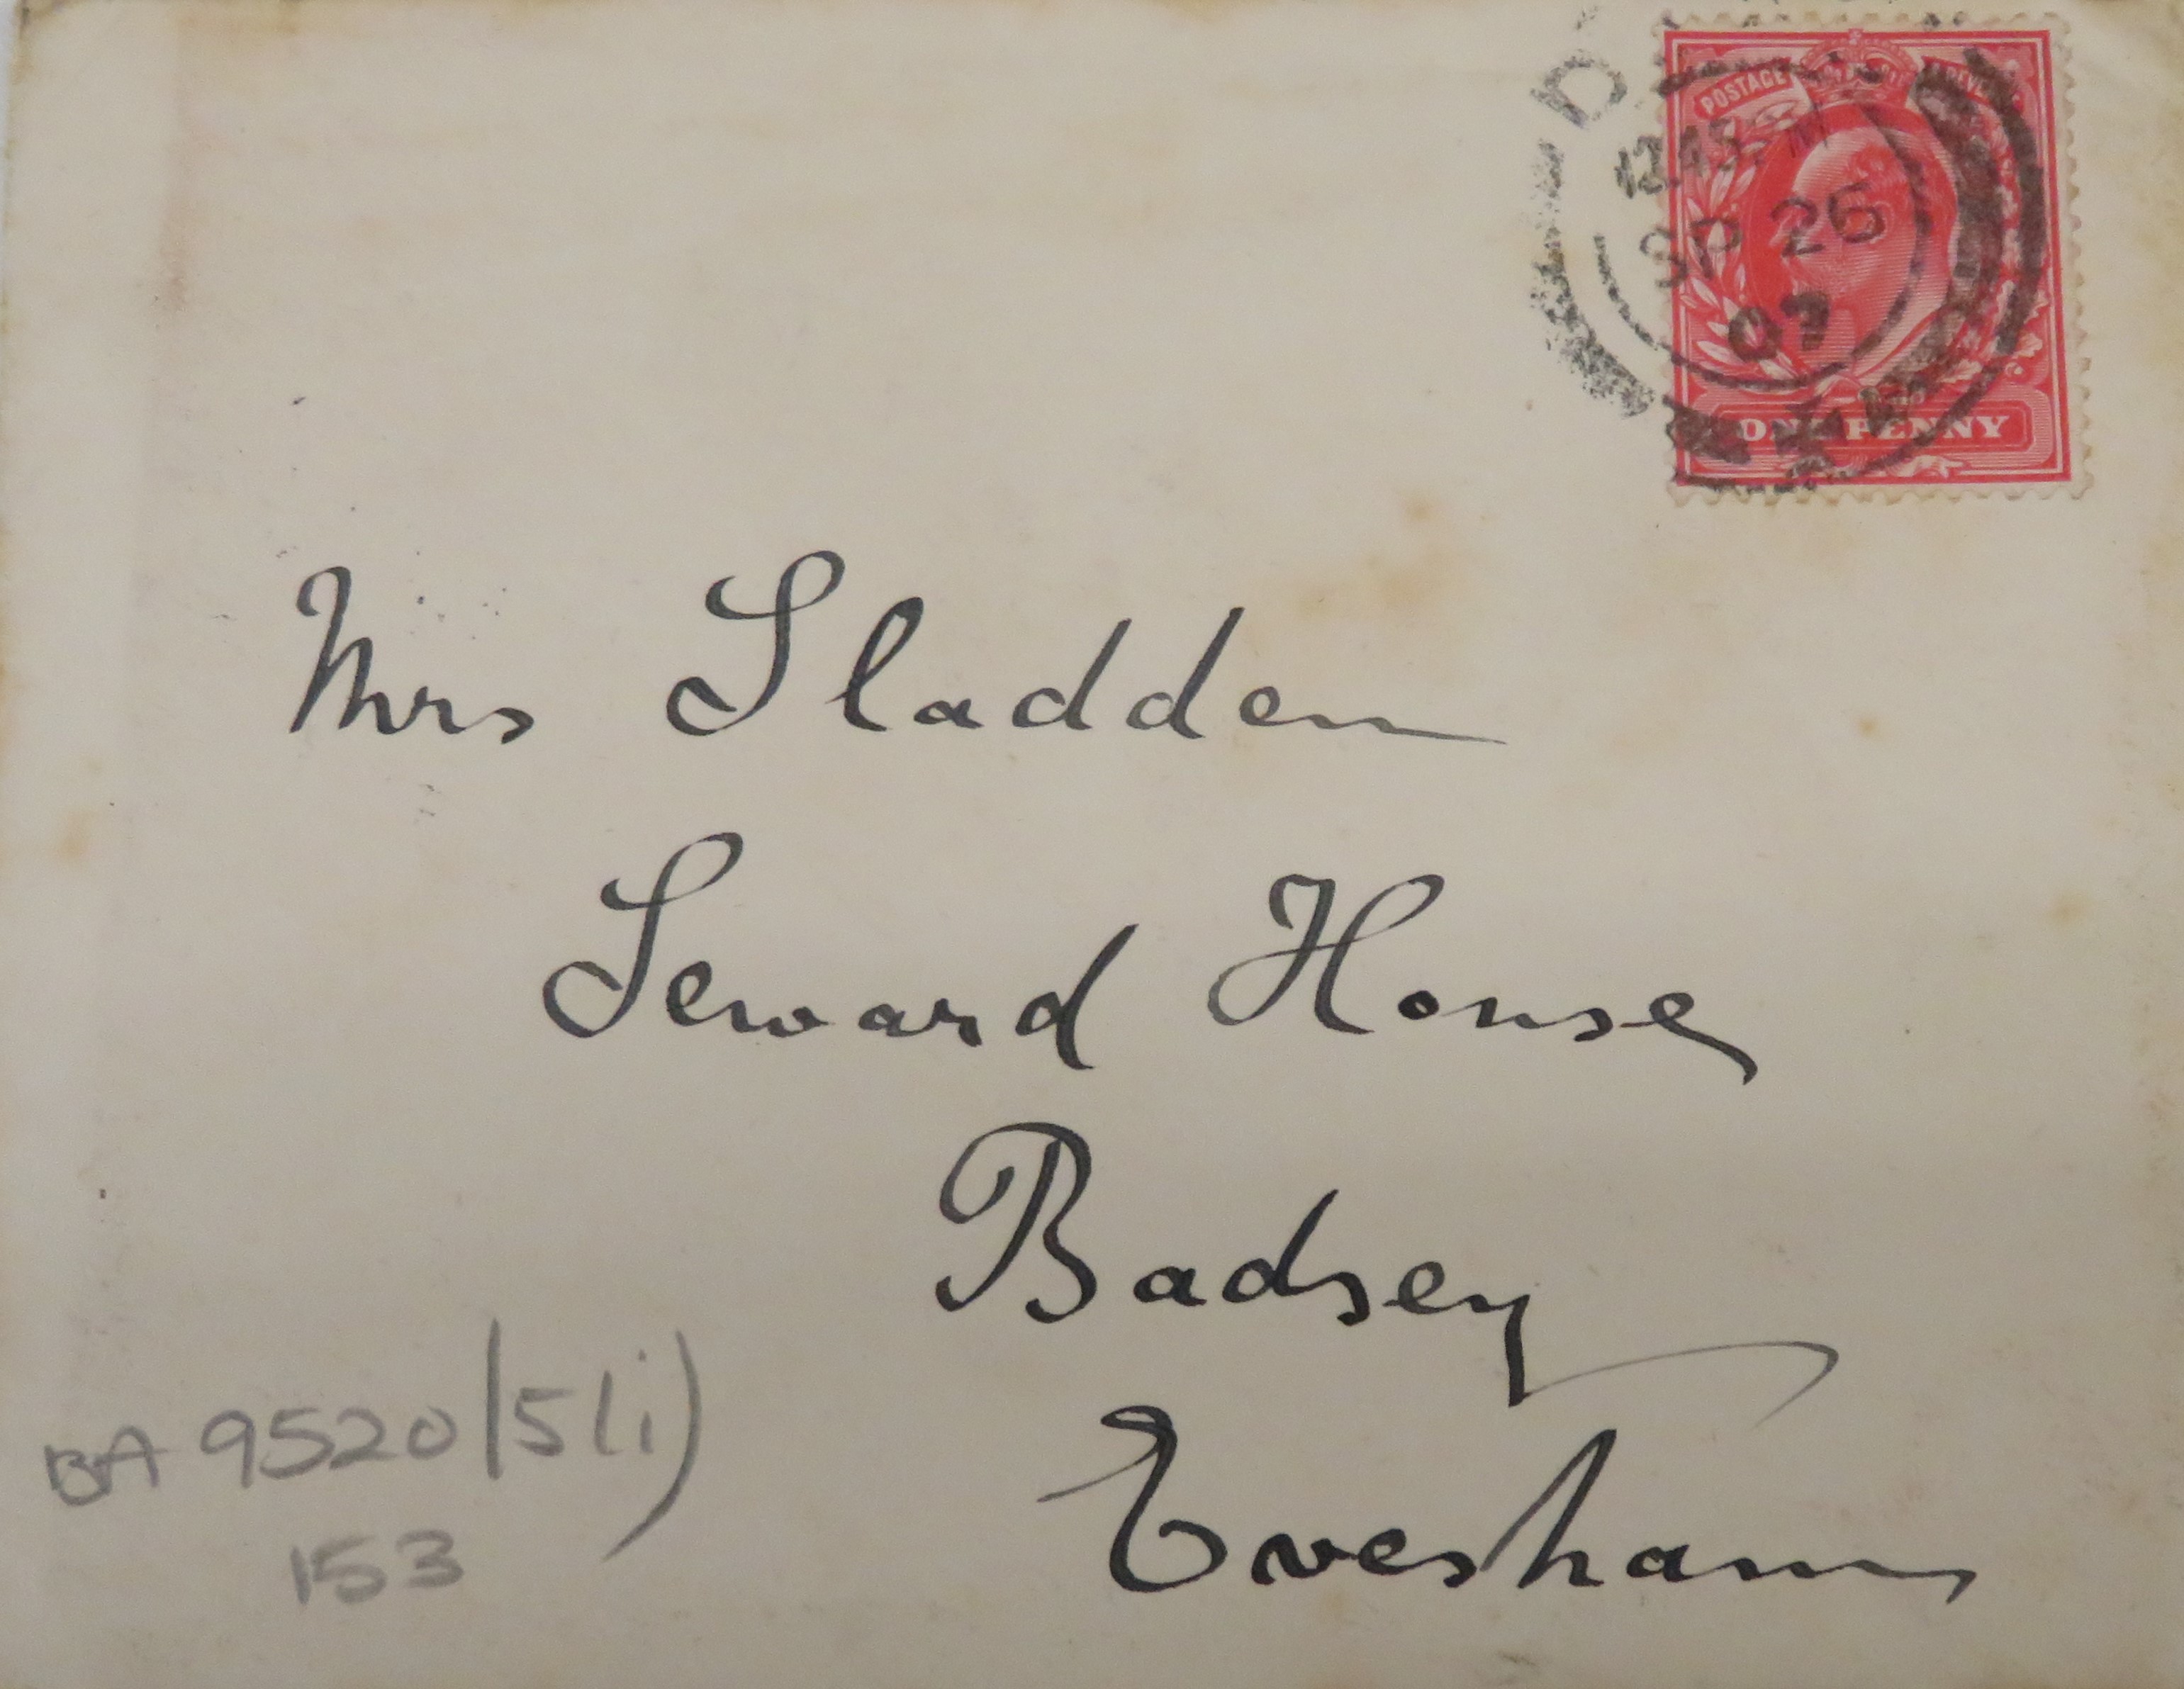 POSTAGE REVENUE
12.45
SP 26
07
ONE PENNY
Mrs Sladden
Seward House
Badsey
Evesham
BA 9520/5(i)
153